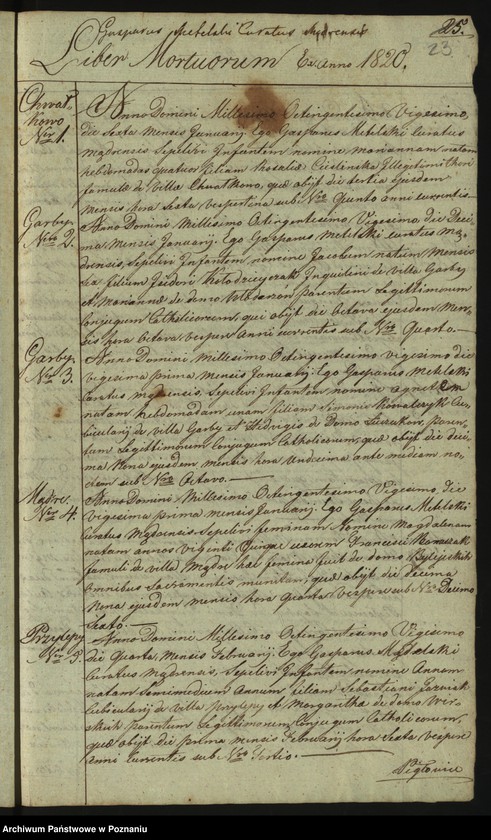 25.
23
Gasparus Mebelski Curatus Mądrensis
Liber Mortuorum Ex Anno 1820.
Chwał-
kowo
Nro 1.
Anno Domini Millesimo Octingentesimo Vigesimo,
die Sexta Mensis Januarij Ego Gasparus Mebelski Curatus
Mądrensis Sepelivi Infantem nomine Mariannam natam
hebdomadas quatuor filiam Rosaliæ Illegitimi thori
famulæ de Villa Chwałkowo, quæ obijt die tertia ejusdem
Mensis hora Sexta Vespertina sub Nro Quinto anni currentis
Garby
Nro 2.
Anno Domini Millesimo Octingentesimo Vigesimo die Deci-
ma Mensis Januarij Ego Gasparus Mebelski Curatus Mą-
drensis, Sepelivi Infantem, nomine Jacobum natum Mensis
Sex filium Isidori Kołodzieyczak Inquilini de Villa Garby
et Mariannæ de domo parentum Legittimorum
Conjugum Catholicorum, qui obijt die Octava ejusdem Men-
sis hora Octava Vespere Anni currentis sub Nro Quarto.
Garby
Nro 3.
Anno Domini Millesimo Octingentesimo vigesimo die
vigesima prima Mensis Januarij Ego Gasparus Mebelski
Curatus Mądrensis, Sepelivi Infantem nomine Agnetem
natam hebdomadam unam filiam Simonis Kowalczyk Cu-
bicularij de villa Garby et Hedvigis de Domo paren-
tum Legittimorum Conjugum Catholicorum, quæ obijt die deci-
ma Nona ejusdem mensis hora Undecima ante mediam no-
ctem sub Nro Octavo.
Mądre.
Nro 4.
Anno Domini Millesimo Octingentesimo Vigesimo Die
Vigesima prima Mensis Januarij Ego Gasparus Mebelski
Curatus Mądrensis Sepelivi feminam Nomine Magdalenam
natam annos viginti Quinque uxorem Francisci
famuli de villa Mądre hæc femina fuit de domo
Omnibus Sacramentis munitam, quæ obijt die Decima
Nona ejusdem mensis hora Quarta Vespere sub Nro Decimo
Sexto.
Przylepy
Nro 5.
Anno Domini Millesimo Octingentesimo Vigesimo
die Quarta Mensis Februarij Ego Gasparus Mebelski
Curatus Mądrensis, Sepelivi Infantem nomine Annam
natam Annum filiam Sebastiani
Cubicularij de villa Przylepy et Margarithæ de domo
parentum Legittimorum Conjugum Catholicorum,
quæ obijt die prima mensis Februarij hora Sexta vespere
anni currentis sub Nro Tertio.
Archiwum Państwowe w Poznaniu
Archiwum Państwowe w Poznaniu